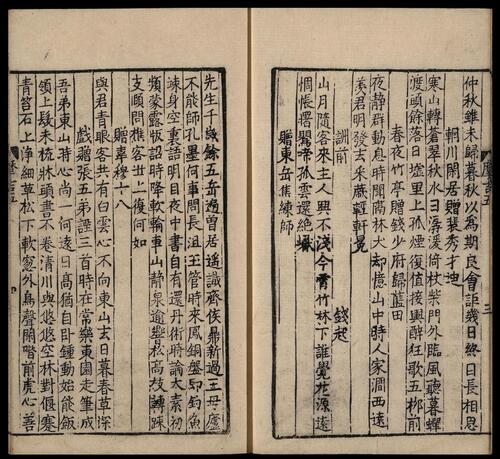 仲秋雖未歸暮秋以為期良會詎幾日終日長相思
輞川閑居贈裴秀才迪
寒山轉蒼翠秋水日潺湲倚杖柴門外臨風聽暮蟬
渡頭餘落日墟里上孤煙復值接輿醉狂歌五柳前
春夜竹亭贈錢少府歸藍田
夜靜群動息時聞隔林犬却憶山中時人家澗西遠
羨君明發去采蕨輕軒冕
詶前 錢起
山月隨客來主人興不淺今宵竹林下誰覺花源遠
惆悵曙鶯啼孤雲還絕巘
贈東岳焦練師
先生千歲餘五岳遍曾居遙識齊侯鼎新過王母廬
不能師孔墨何事問長沮玉管時來鳳銅盤即釣魚
竦身空裏語明目夜中書自有還丹術時論太素初
頻蒙露版詔時降軟輪車山靜泉逾響松高枝轉踈
支頤問樵客世上復何如
贈韋穆十八
與君青眼客共有白雲心不向東山去日暮春草深
戲贈張五弟諲三首時在常樂東園走筆成
吾弟東山時心尚一何遠日高猶自卧鍾動始能飯
領上髮未梳牀頭書不卷清川興悠悠空林對偃蹇
青苔石上淨細草松下軟窓外鳥聲閑階前虎心善